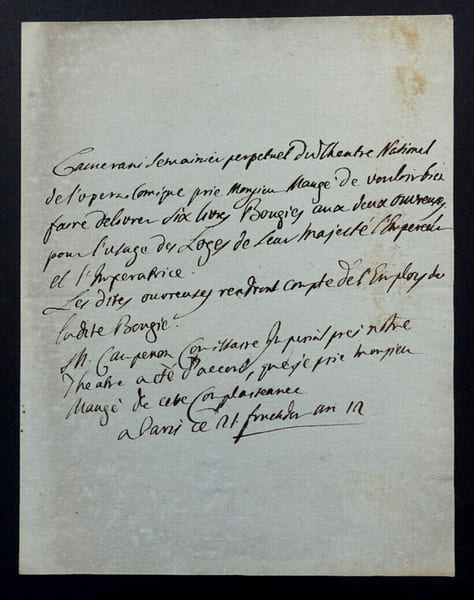 Camerani Semainier perpetuel du Theatre National
de l'opera Comique prie Monsieur Maugé de vouloir bien
faire delivrer Six livres Bougies aux deux ouvreuses,
pour l'usage des Loges de Leur Majesté l'Empereur
et l'Imperatrice.
Les dites ouvreuses rendront compte de l'Employ de
ladite Bougie.
M. Campenon Comissaire Imperial pres notre
Theatre a été d'accord, que je prie Monsieur
Maugé de cette Complaisance
a Paris ce 21 fructidor an 12